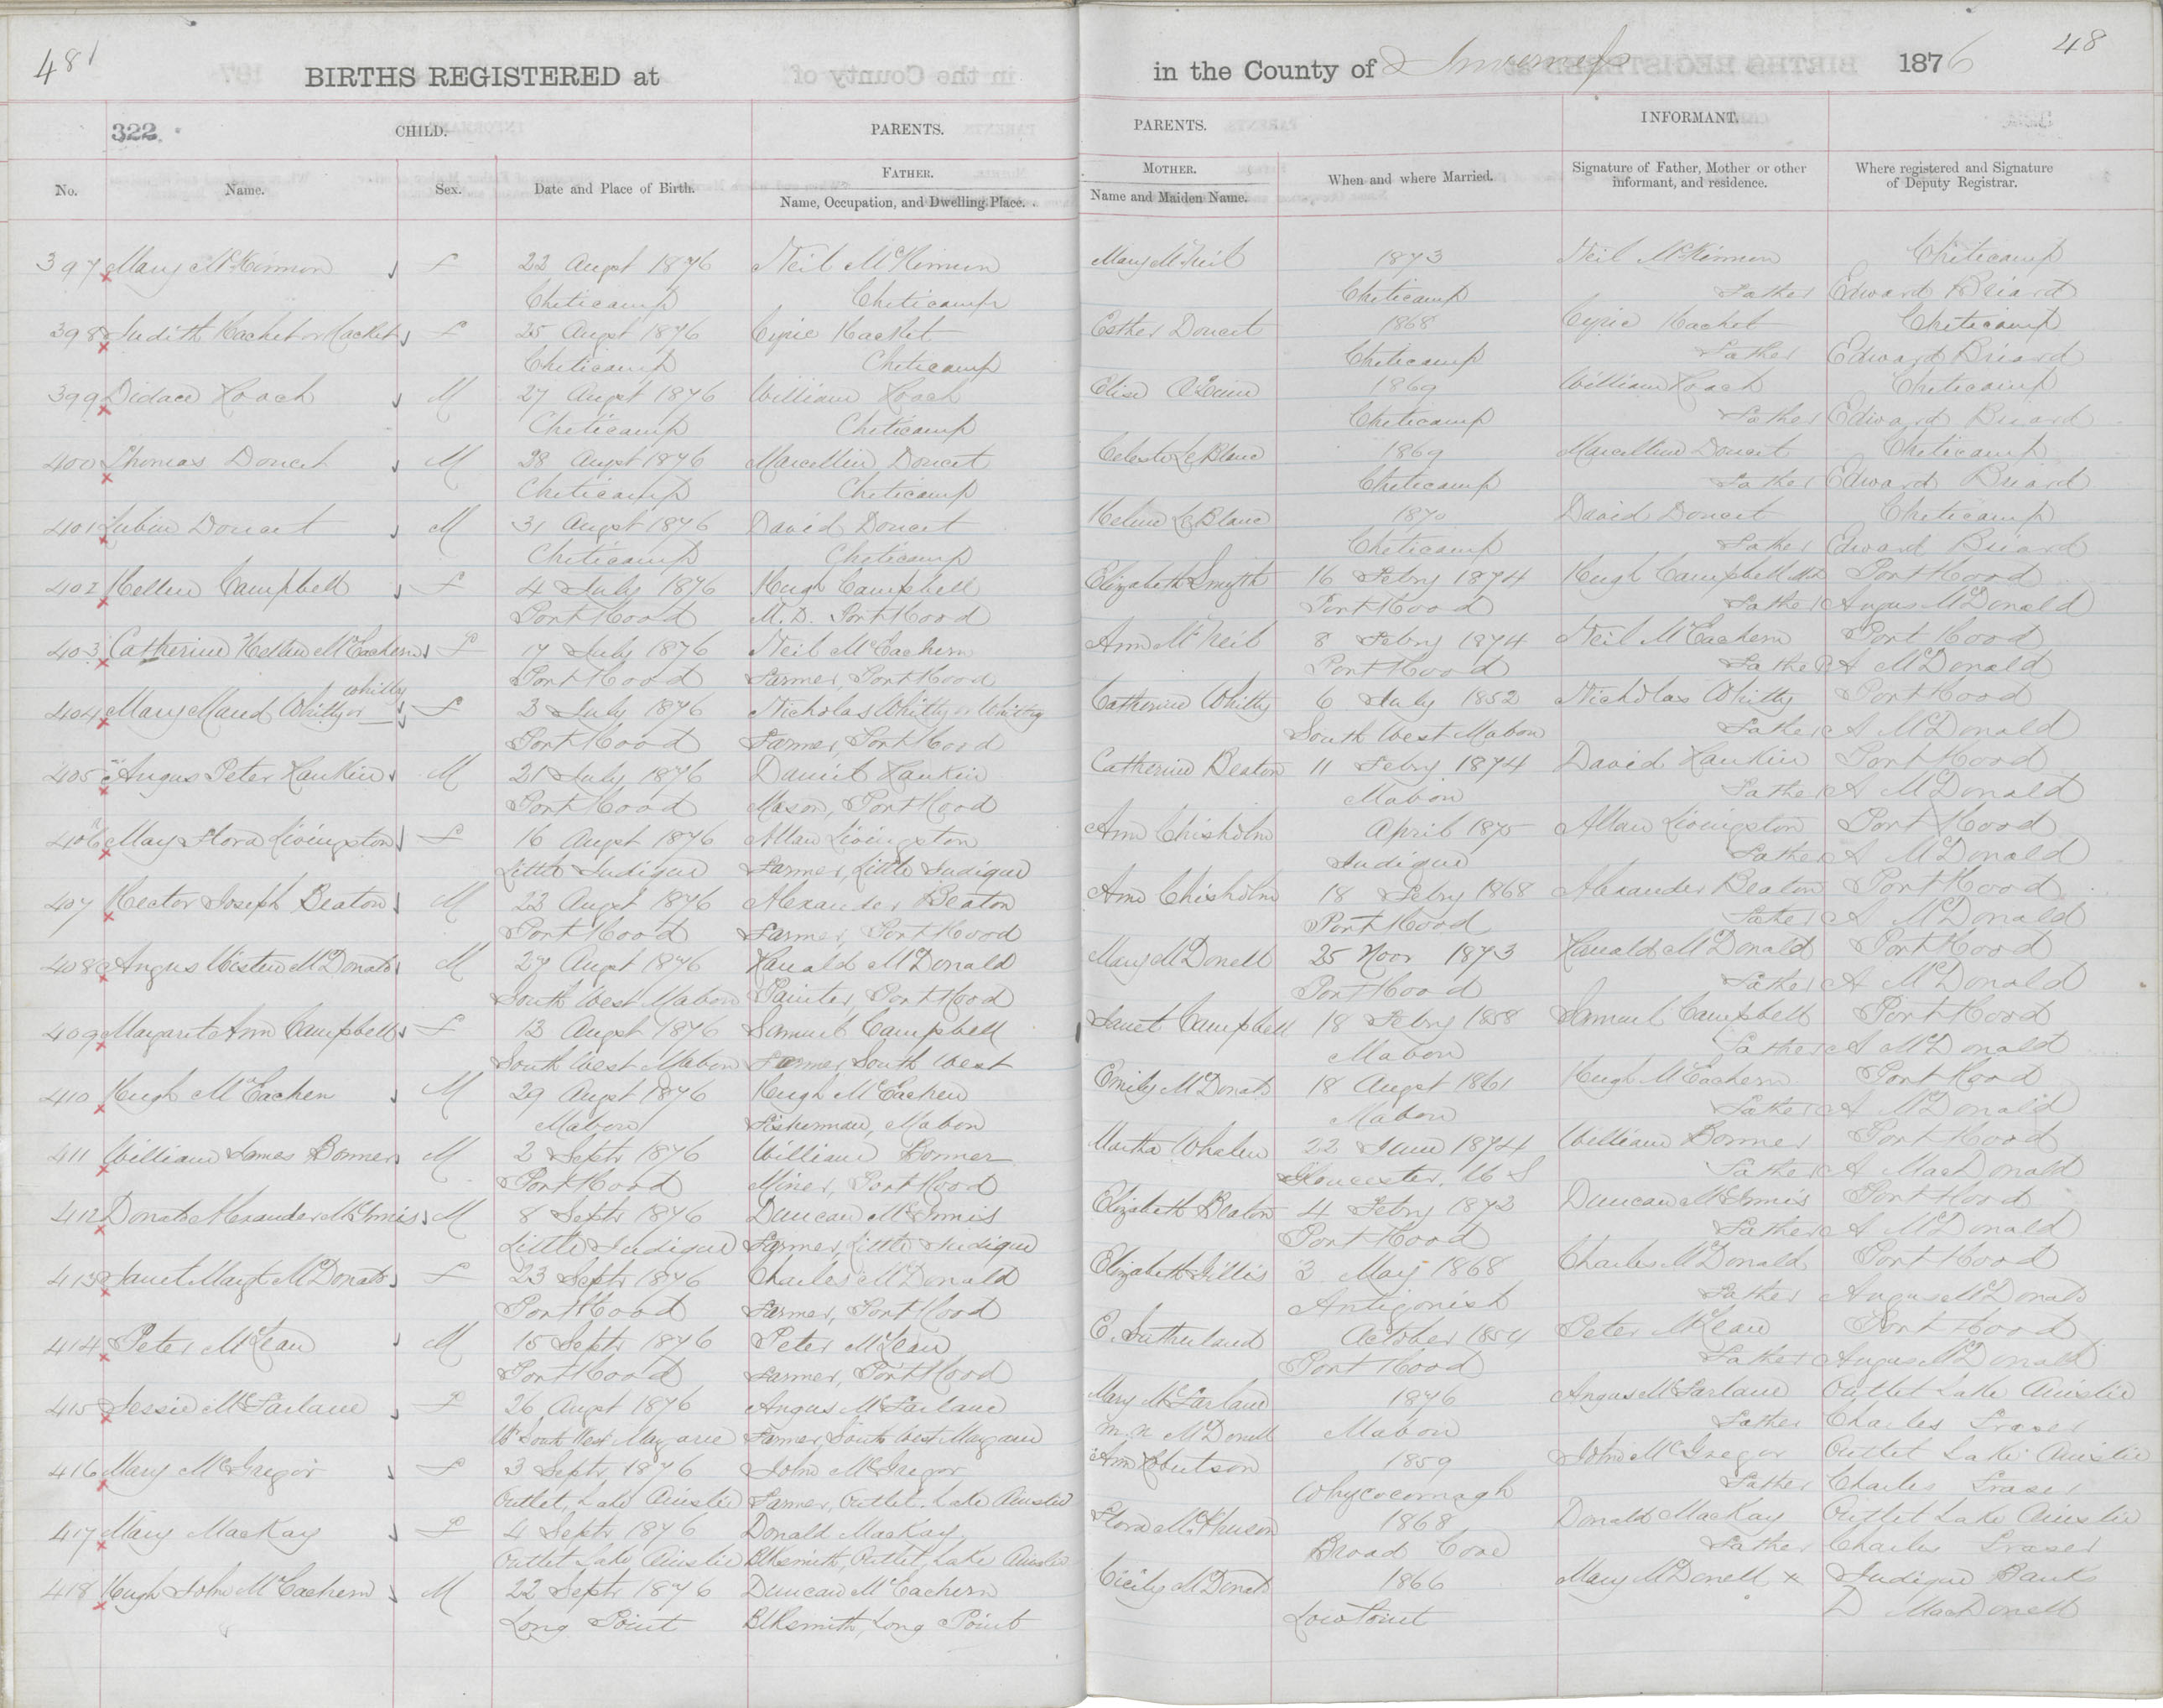 481
BIRTHS REGISTERED at
in the County of Inverness 1876 48
322.
CHILD.
PARENTS.
PARENTS.
INFORMANT.
No. Name. Sex. Date and Place of Birth.
FATHER.
Name, Occupation, and Dwelling Place.
MOTHER.
Name and Maiden Name.
When and where Married.
Signature of Father, Mother or other
informant, and residence.
Where registered and Signature
of Deputy Registrar.
397 Mary McKinnon F 22 Augst 1876 Neil McKinnon Mary McNeil 1873 Neil McKinnon Cheticamp
Cheticamp Cheticamp Cheticamp Father Edward Briard
398 Judith Hachet or Hacket F 25 Augst 1876 Cyric Hacket Esther Doucet 1868 Cyric Hachet Cheticamp
Cheticamp Cheticamp Cheticamp Father Edward Briard
399 Didace Roach M 27 Augst 1876 William Roach Elise 1869 William Roach Cheticamp
Cheticamp Cheticamp Cheticamp Father Edward Briard
400 Thomas Doucet M 28 Augst 1876 Marcellin Doucet Celeste LeBlanc 1869 Marcellin Doucet Cheticamp
Cheticamp Cheticamp Cheticamp Father Edward Briard
401 Lubin Doucet M 31 Augst 1876 David Doucet Helene LeBlanc 1870 David Doucet Cheticamp
Cheticamp Cheticamp Cheticamp Father Edward Briard
402 Hellen Campbell F 4 July 1876 Hugh Campbell Elizabeth Smyth 16 Febry 1874 Hugh Campbell MD Port Hood
Port Hood M.D. Port Hood Port Hood Father Angus McDonald
403 Catherine Hellen McEachern F 17 July 1876 Neil McEachern Ann McNeil 8 Febry 1874 Neil McEachern Port Hood
Port Hood Farmer, Port Hood Port Hood Father A McDonald
Whitty
404 Mary Maud Whitty or F 3 July 1876 Nicholas Whitty or Whitty Catherine Whitty 6 July 1852 Nicholas Whitty Port Hood
Port Hood Farmer, Port Hood South West Mabou Father A McDonald
405 Angus Peter Rankin M 21 July 1876 David Rankin Catherine Beaton 11 Febry 1874 David Rankin Port Hood
Port Hood Mason, Port Hood Mabou Father A McDonald
406 Mary Flora Livingston F 16 Augst 1876 Allan Livingston Ann Chisholm April 1875 Allan Livingston Port Hood
Little Judique Farmer, Little Judique Judique Father A McDonald
407 Hector Joseph Beaton M 23 Augst 1876 Alexander Beaton Ann Chisholm 18 Febry 1868 Alexander Beaton Port Hood
Port Hood Farmer, Port Hood Port Hood Father A McDonald
408 Angus McDonald M 27 Augst 1876 Ranald McDonald Mary McDonell 25 Novr 1873 Ranald McDonald Port Hood
South West Mabou Painter, Port Hood Port Hood Father A McDonald
409 Margaret Ann Campbell F 13 Augst 1876 Samuel Campbell Janet Campbell 18 Febry 1858 Samuel Campbell Port Hood
South West Mabou Farmer South West Mabou Father A McDonald
410 Hugh McEachen M 29 Augst 1876 Hugh McEachen Emily McDonald 18 Augst 1861 Hugh McEachern Port Hood
Mabou Fisherman, Mabou Mabou Father A McDonald
411 William James Bonner M 2 Septr 1876 William Bonner Martha Whalen 22 June 1874 William Bonner Port Hood
Port Hood Miner, Port Hood Gloucester, U S Father A MacDonald
412 Donald Alexander McInnis M 8 Septr 1876 Duncan McInnis Elizabeth Beaton 4 Febry 1873 Duncan McInnis Port Hood
Little Judique Farmer, Little Judique Port Hood Father A McDonald
413 Janet Margt McDonald F 23 Septr 1876 Charles McDonald Elizabeth Gillis 3 May 1868 Charles McDonald Port Hood
Port Hood Farmer, Port Hood Antigonish Father Angus McDonald
414 Peter McLean M 15 Septr 1876 Peter McLean C. Sutherland October 1854 Peter McLean Port Hood
Port Hood Farmer, Port Hood Port Hood Father Angus McDonald
415 Jessie McFarlane F 26 Augst 1876 Angus McFarlane Mary McFarlane 1876 Angus McFarlane Outlet Lake Ainslie
South West Margaree Farmer, South West Margaree m.n McDonell Mabou Father Charles Fraser
416 Mary McGregor F 3 Septr 1876 John McGregor Ann Robertson 1859 John McGregor Outlet Lake Ainslie
Outlet, Lake Ainslie Farmer, Outlet, Lake Ainslie Whycocomagh Father Charles Fraser
417 Mary MacKay F 4 Septr 1876 Donald MacKay Flora McPherson 1868 Donald MacKay Outlet Lake Ainslie
Outlet Lake Ainslie Blksmith, Outlet, Lake Ainslie Broad Cove Father Charles Fraser
418 Hugh John McEachern M 22 Septr 1876 Duncan McEachern Cicily McDonald 1866 Mary McDonell x Judique Banks
Long Point Blksmith, Long Point D MacDonell